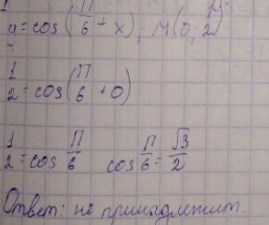 y = cos(П/6 + x), M(0; 1/2)
1/2 = cos(П/6 + 0)
1/2 = cos П/6 cos П/6 = √3/2
Ответ: не принадлежит.